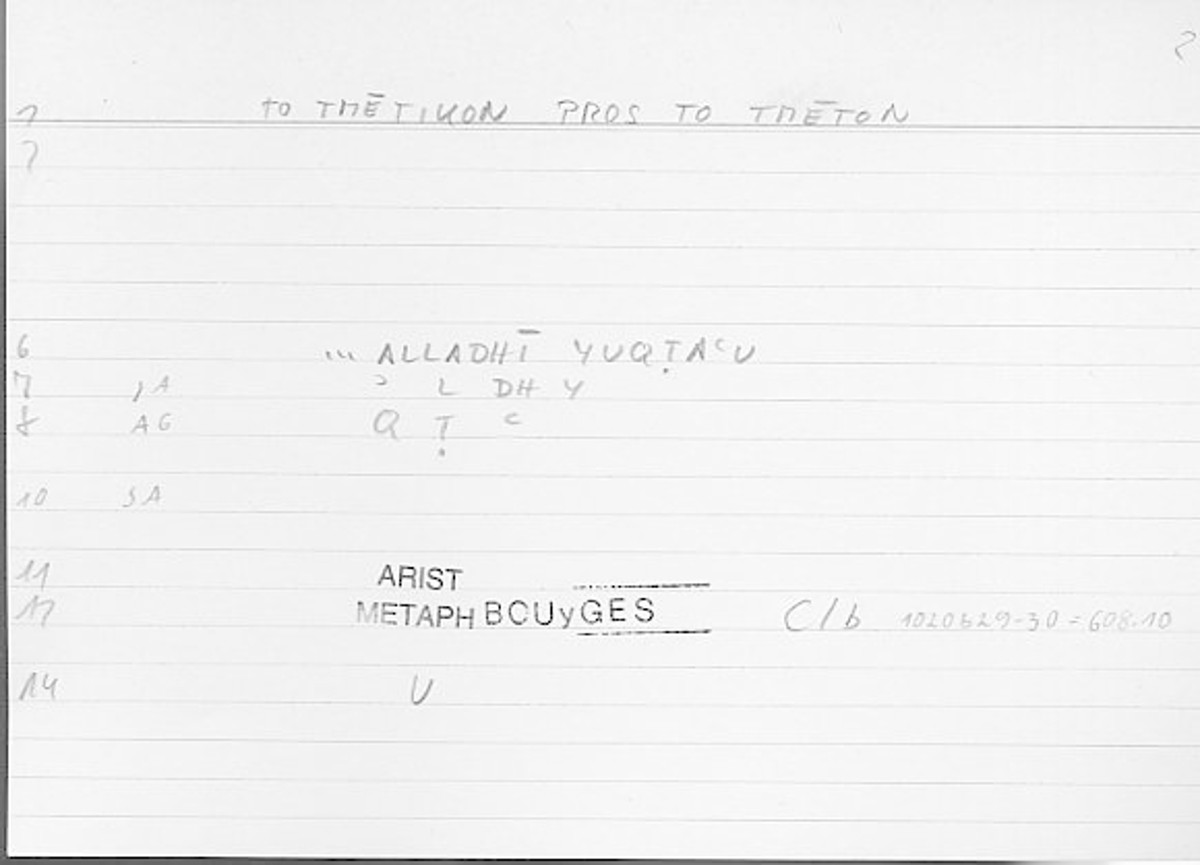 2
1 TO TMĒTIKON PROS TO TMĒTON
2
6 ... ALLADHĪ YUQṬAʿU
7 ,A ʾ L DH Y
8 AG Q Ṭ ʿ
10 SA
11 ARIST
12 METAPH BOUyGES C/b 1020b29-30 = 608.10
14 U